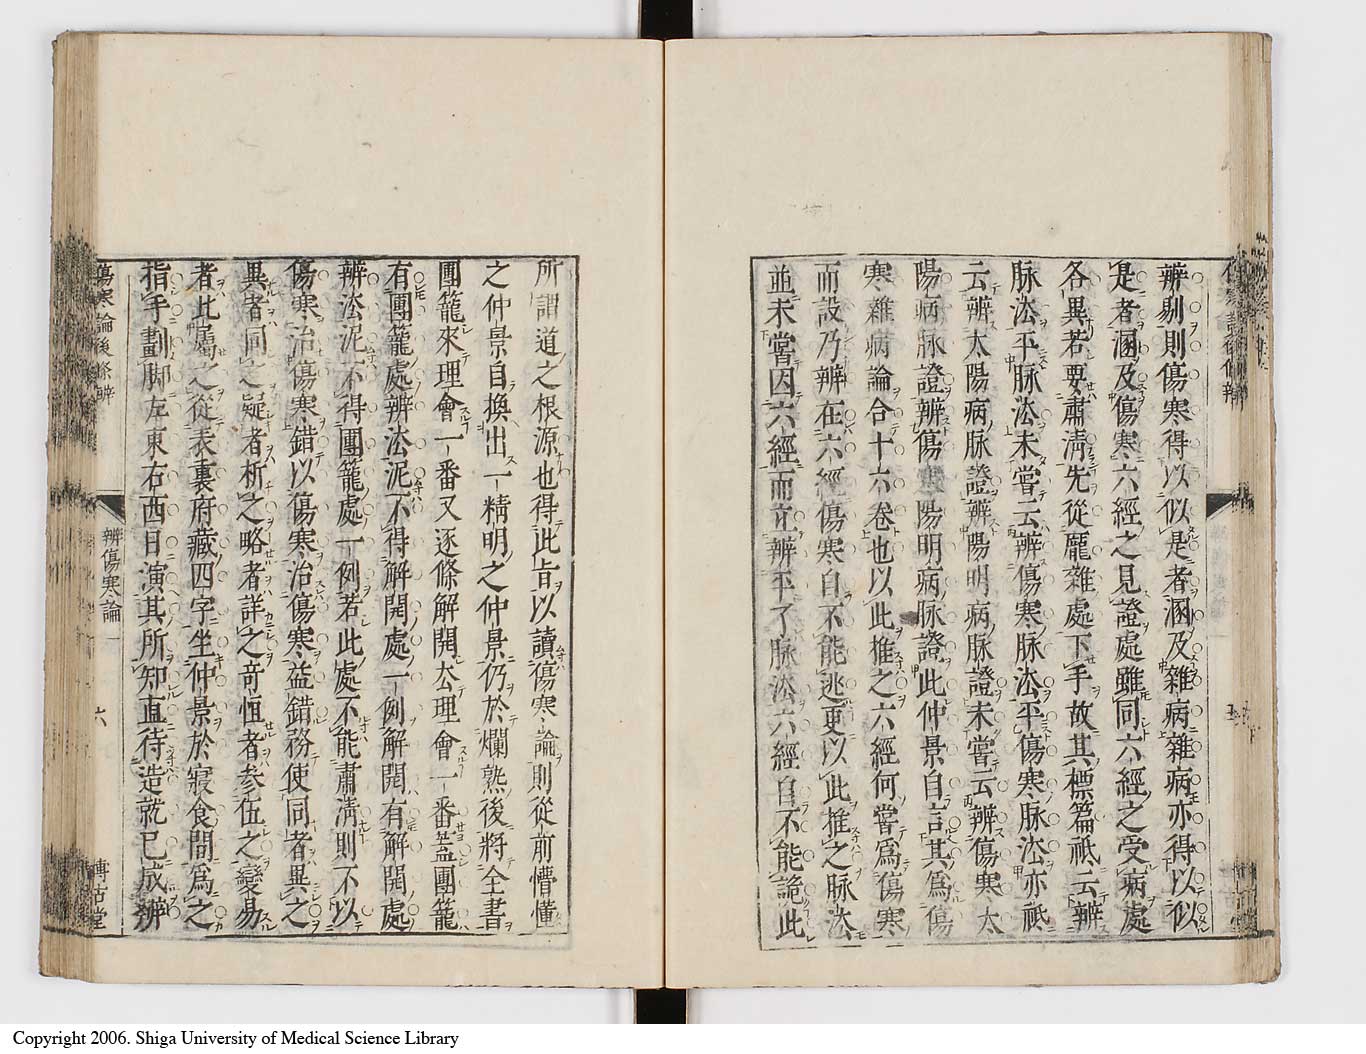 辨剔則傷寒得以似是者溷及雜病雜病亦得以似
是者溷及傷寒六經之見證處雖同六經之受病處
各異若要肅淸先從龐雜處下手故其標篇祗云辨
脉法平脉法未嘗云辨傷寒脉法平傷寒脉法亦祗
云辨太陽病脉證辨陽明病脉證未嘗云辨傷寒太
陽病脉證辨傷寒陽明病脉證此仲景自言其爲傷
寒雜病論合十六卷也以此推之六經何嘗爲傷寒
而設乃辨在六經傷寒自不能逃更以此推之脉法
並未嘗因六經而立辨平了脉法六經自不能詭此
所謂道之根源也得此旨以讀傷寒論則從前懵懂
之仲景自換出一精明之仲景仍於爛熟後將全書
團籠來理會一番又逐條解開去理會一番葢團籠
有團籠處辨法泥不得解開處一例解開有解開處
辨法泥不得團籠處一例若此處不能肅淸則不以
傷寒治傷寒錯以傷寒治傷寒益錯務使同者異之
異者同之疑者析之略者詳之奇恒者參伍之變易
者此屬之從表裏府藏四字坐仲景於寢食間爲之
指手劃脚左東右西目演其所知直待造就已成辨
傷寒論後條辨
辨傷寒論一
六
博古堂